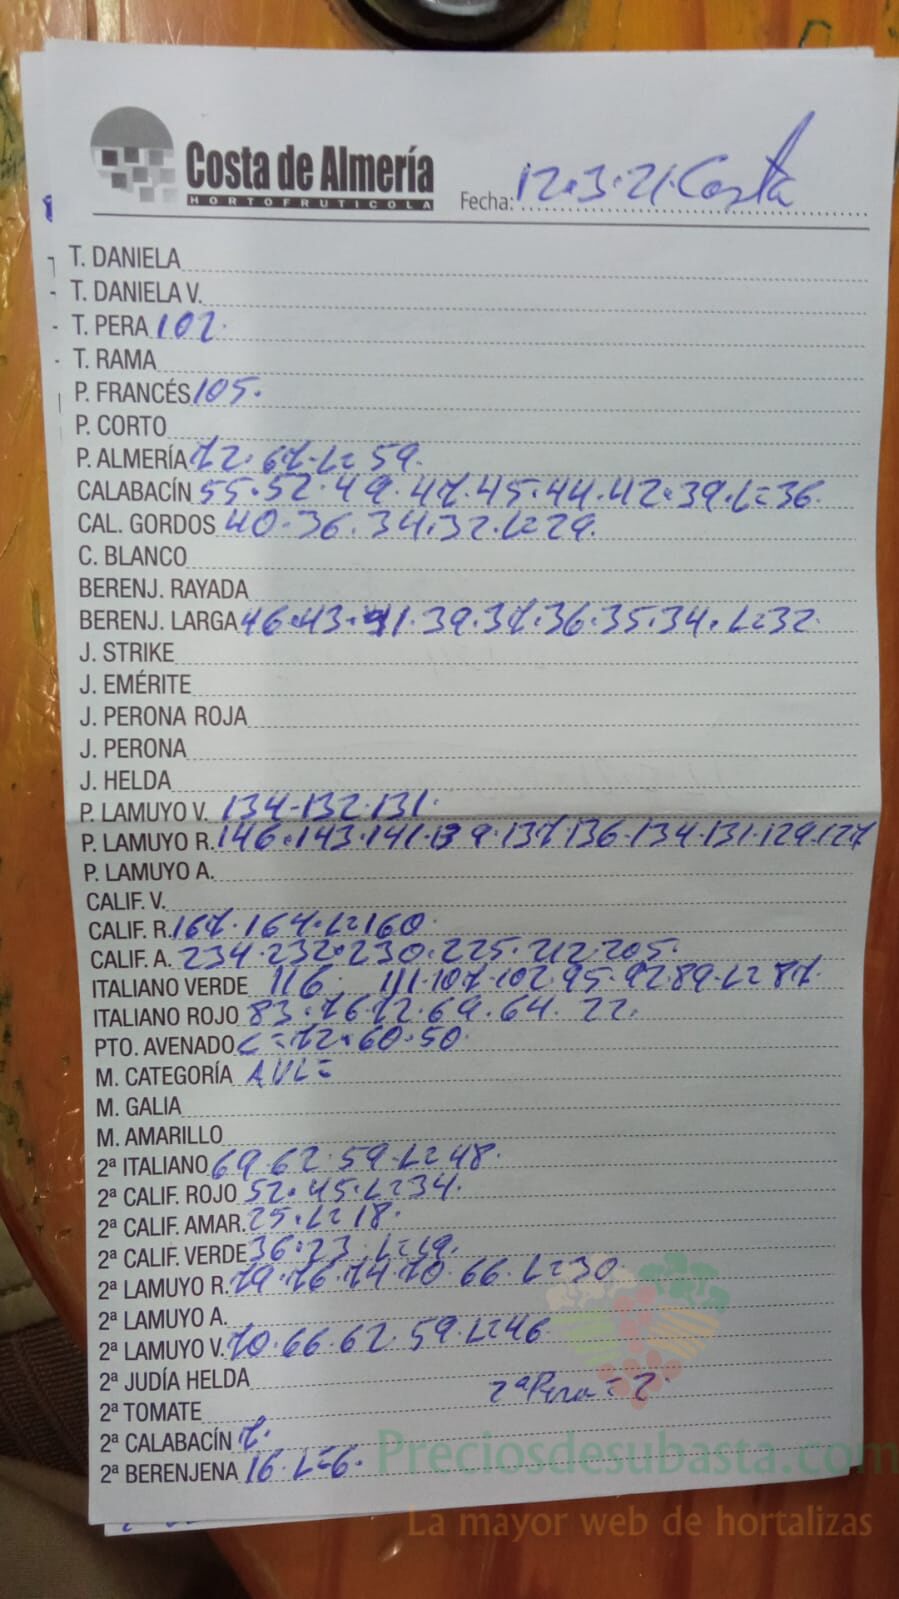 Costa de Almería
HORTOFRUTICOLA
Fecha: 12.3.21. Costa
T. DANIELA
T. DANIELA V.
T. PERA 102.
T. RAMA
P. FRANCÉS 105.
P. CORTO
P. ALMERÍA 72. 67. L= 59.
CALABACÍN 55.52.49.47.45.44.42.39.L=36.
CAL. GORDOS 40.36.34.32.L=29.
C. BLANCO
BERENJ. RAYADA
BERENJ. LARGA 46.43.41.39.37.36.35.34.L=32.
J. STRIKE
J. EMÉRITE
J. PERONA ROJA
J. PERONA
J. HELDA
P. LAMUYO V. 134-132.131.
P. LAMUYO R. 146.143.141.139.137.136.134.131.129.127
P. LAMUYO A.
CALIF. V.
CALIF. R. 167.164.L=160.
CALIF. A. 234.232.230.225.212.205.
ITALIANO VERDE 116 111.107.102.95.92.89.L=87.
ITALIANO ROJO 83.76.72.69.64.22.
PTO. AVENADO C=72.60.50.
M. CATEGORÍA
M. GALIA
M. AMARILLO
2ª ITALIANO 69.62.59.L=48.
2ª CALIF. ROJO 52.45.L=34.
2ª CALIF. AMAR. 25.L=18.
2ª CALIF. VERDE 36.23.L=19.
2ª LAMUYO R. 79.76.74.70.66.L=30.
2ª LAMUYO A.
2ª LAMUYO V. 70.66.62.59.L=46.
2ª JUDÍA HELDA
2ª Pera = 7.
2ª TOMATE
2ª CALABACÍN 7.
2ª BERENJENA 16.L=6.
Preciosdesubasta.com
La mayor web de hortalizas